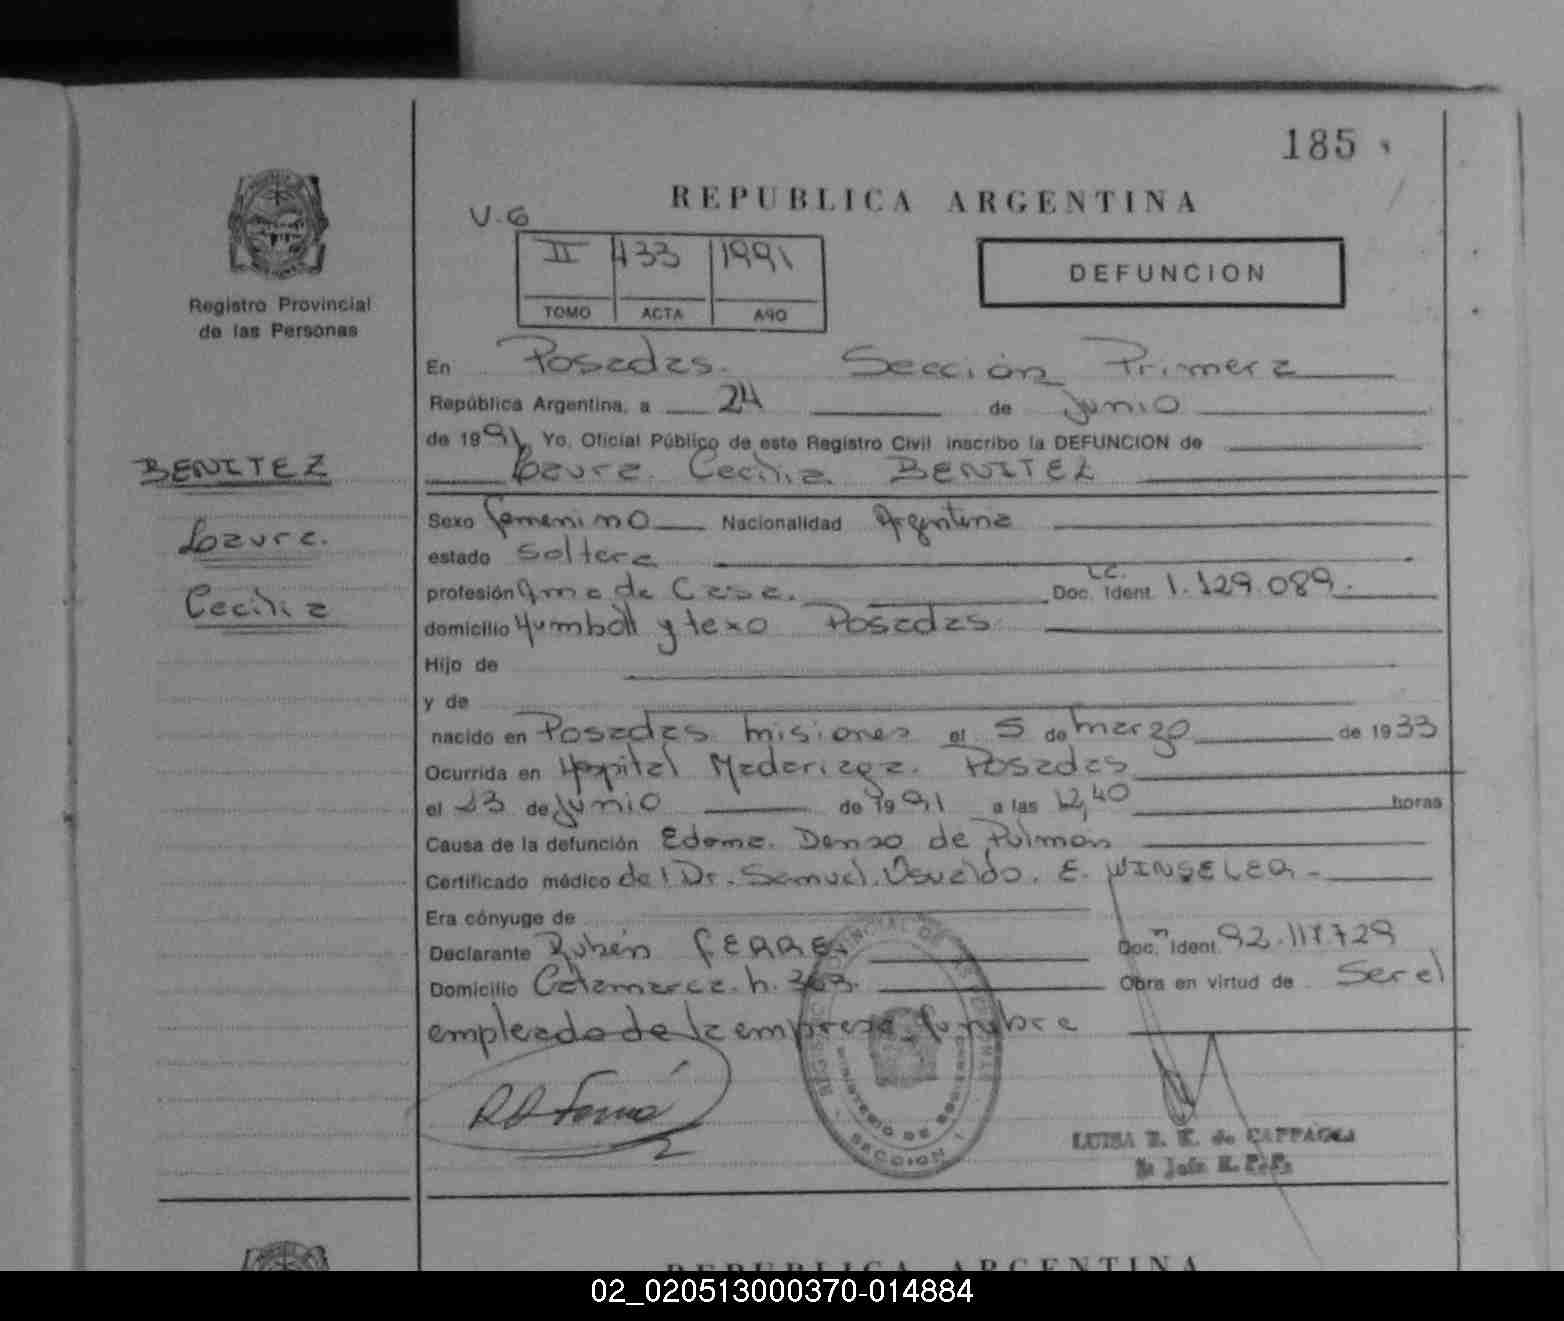 185
REPUBLICA ARGENTINA
V. 6
II 433 1991
TOMO ACTA AÑO
DEFUNCION
Registro Provincial
de las Personas
En Posadas. Sección Primera
República Argentina, a 24 de Junio
de 1991 Yo, Oficial Público de este Registro Civil inscribo la DEFUNCION de
Laura Cecilia BENITEZ
BENITEZ
Laura
Cecilia
Sexo femenino Nacionalidad Argentina
estado soltera
profesión Ama de Casa. Doc. Ident. L.C. 1.129.089.
domicilio Humbolt y texo Posadas
Hijo de
y de
nacido en Posadas Misiones el 5 de Marzo de 1933
Ocurrida en Hospital Madariaga. Posadas
el 23 de Junio de 1991 a las 12,40 horas
Causa de la defunción Edema Denso de Pulmón
Certificado médico del Dr. Samuel Osvaldo. E. WINSELER -
Era cónyuge de
Declarante Rubén FERRE Doc. Ident. 92.117.729
Domicilio Catamarca. h. 363. Obra en virtud de Ser el
empleado de la empresa funebre
MINISTERIO DE
SECCION 1
LUISA de
REPUBLICA ARGENTINA
02_020513000370-014884